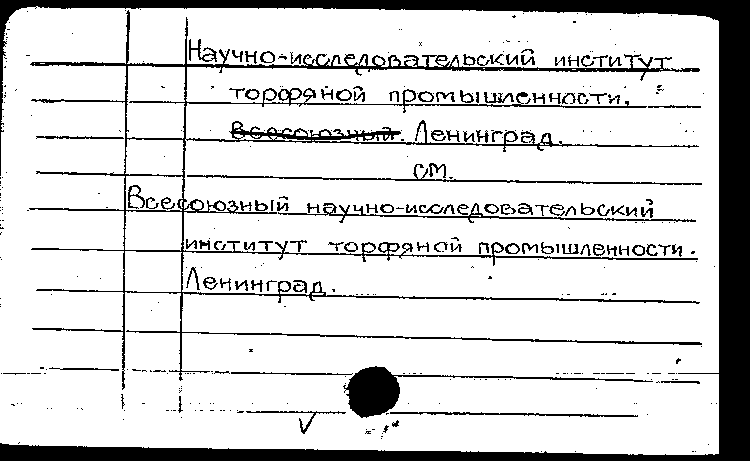 Научно-исследовательский институт
торфяной промышленности,
Всесоюзный. Ленинград.
см.
Всесоюзный научно-исследовательский
институт торфяной промышленности.
Ленинград.